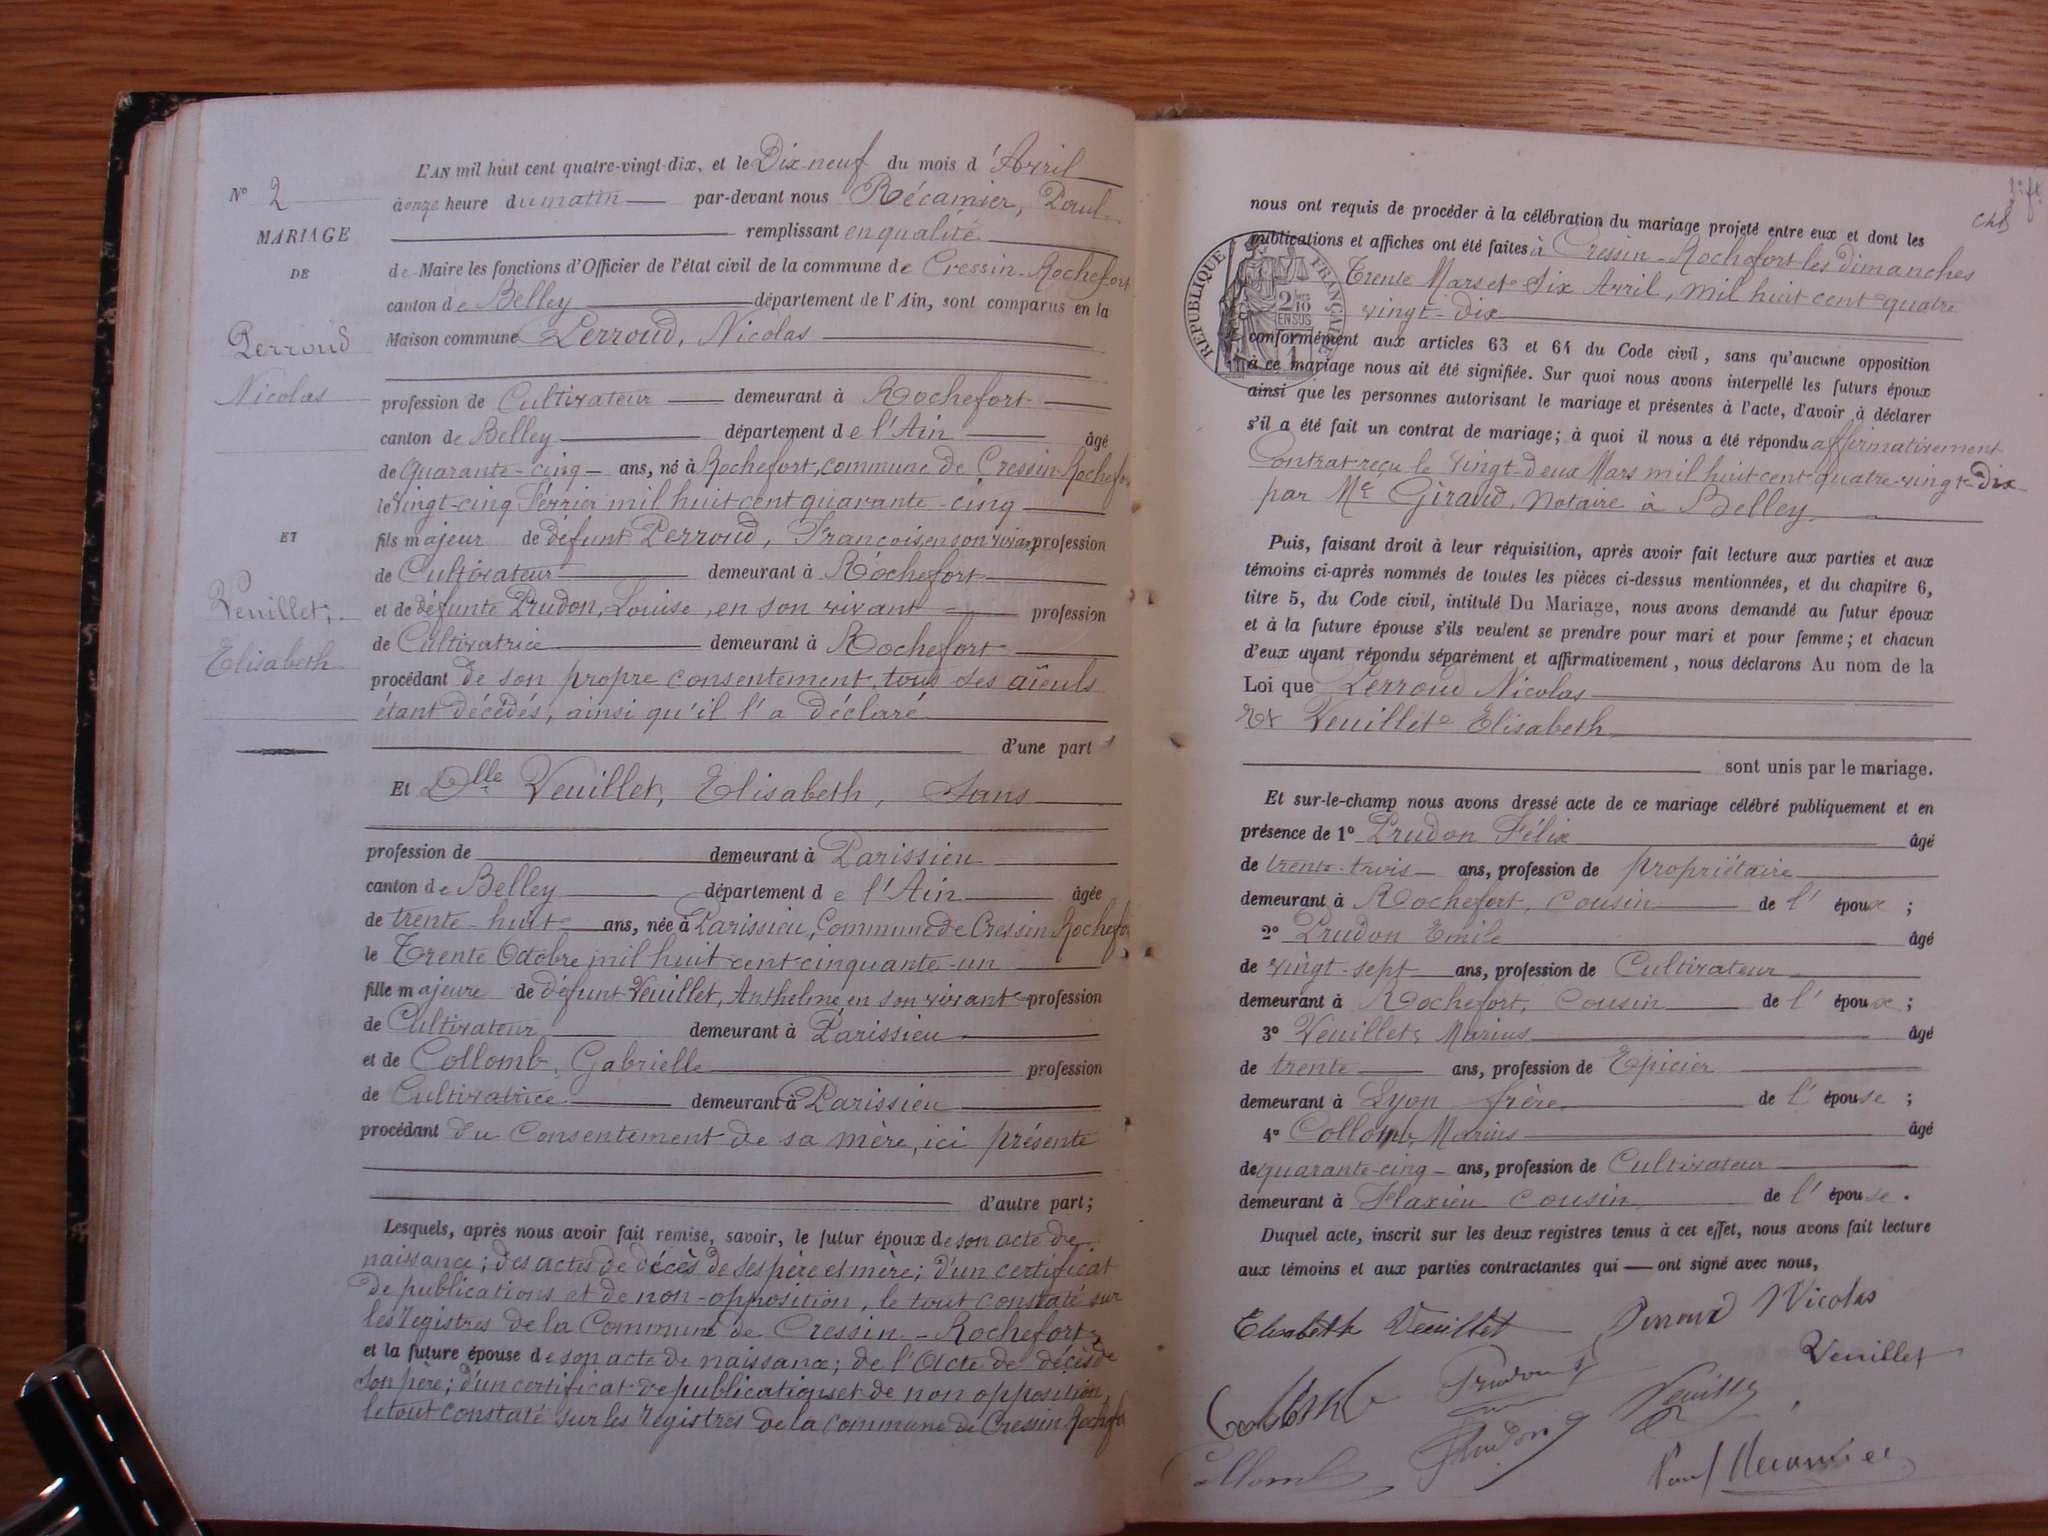 L'AN mil huit cent quatre-vingt-dix, et le Dix-neuf du mois d'Avril
à onze heure du matin par-devant nous Récamier, Paul
remplissant en qualité
de Maire les fonctions d'Officier de l'état civil de la commune de Cressin-Rochefort
canton de Belley département de l'Ain, sont comparus en la
Maison commune Perroud, Nicolas
profession de Cultivateur demeurant à Rochefort
canton de Belley département de l'Ain âgé
de quarante-cinq ans, né à Rochefort, commune de Cressin-Rochefort
le vingt-cinq Février mil huit cent quarante-cinq
fils majeur de défunt Perroud, François en son vivant profession
de Cultivateur demeurant à Rochefort
et de défunte Prudon, Louise, en son vivant profession
de Cultivatrice demeurant à Rochefort
procédant de son propre consentement, tous ses aïeuls
étant décédés, ainsi qu'il l'a déclaré
d'une part
Et Dlle Veuillet, Elisabeth, Sans
profession de demeurant à Parissieu
canton de Belley département de l'Ain âgée
de trente-huit ans, née à Parissieu, Commune de Cressin Rochefort
le Trente Octobre mil huit cent cinquante-un
fille majeure de défunt Veuillet, Anthelme en son vivant profession
de Cultivateur demeurant à Parissieu
et de Collomb, Gabrielle profession
de Cultivatrice demeurant à Parissieu
procédant du consentement de sa mère, ici présente
d'autre part;
Lesquels, après nous avoir fait remise, savoir, le futur époux de son acte de
naissance; des actes de décès de ses père et mère; d'un certificat
de publications et de non-opposition, le tout constaté sur
les registres de la Commune de Cressin-Rochefort
et la future épouse de son acte de naissance; de l'acte de décès de
son père; d'un certificat de publications et de non opposition,
le tout constaté sur les registres de la commune de Cressin Rochefort
N° 2
MARIAGE
DE
Perroud
Nicolas
ET
Veuillet,
Elisabeth
nous ont requis de procéder à la célébration du mariage projeté entre eux et dont les
publications et affiches ont été faites à Cressin-Rochefort les dimanches
Trente Mars et Six Avril, mil huit cent quatre
vingt-dix
conformément aux articles 63 et 64 du Code civil, sans qu'aucune opposition
à ce mariage nous ait été signifiée. Sur quoi nous avons interpellé les futurs époux
ainsi que les personnes autorisant le mariage et présentes à l'acte, d'avoir à déclarer
s'il a été fait un contrat de mariage; à quoi il nous a été répondu affirmativement
Contrat reçu le vingt-deux Mars mil huit cent quatre-vingt-dix
par Me Giraud, Notaire à Belley.
RÉPUBLIQUE FRANÇAISE
2/10
EN SUS
Puis, faisant droit à leur réquisition, après avoir fait lecture aux parties et aux
témoins ci-après nommés de toutes les pièces ci-dessus mentionnées, et du chapitre 6,
titre 5, du Code civil, intitulé Du Mariage, nous avons demandé au futur époux
et à la future épouse s'ils veulent se prendre pour mari et pour femme; et chacun
d'eux ayant répondu séparément et affirmativement, nous déclarons Au nom de la
Loi que Perroud Nicolas
Et Veuillet Elisabeth
sont unis par le mariage.
Et sur-le-champ nous avons dressé acte de ce mariage célébré publiquement et en
présence de 1° Prudon Félix âgé
de trente-trois ans, profession de propriétaire
demeurant à Rochefort, cousin de l'époux;
2° Prudon Emile âgé
de vingt-sept ans, profession de Cultivateur
demeurant à Rochefort, Cousin de l'époux;
3° Veuillet, Marius âgé
de trente ans, profession de Epicier
demeurant à Lyon frère de l'épouse;
4° Collomb, Marius âgé
de quarante-cinq ans, profession de Cultivateur
demeurant à Flaxieu cousin de l'épouse.
Duquel acte, inscrit sur les deux registres tenus à cet effet, nous avons fait lecture
aux témoins et aux parties contractantes qui ont signé avec nous,
Elisabeth Veuillet Perroud Nicolas
Veuillet
Collomb Prudon Veuillet
Collomb Prudon Paul Récamier